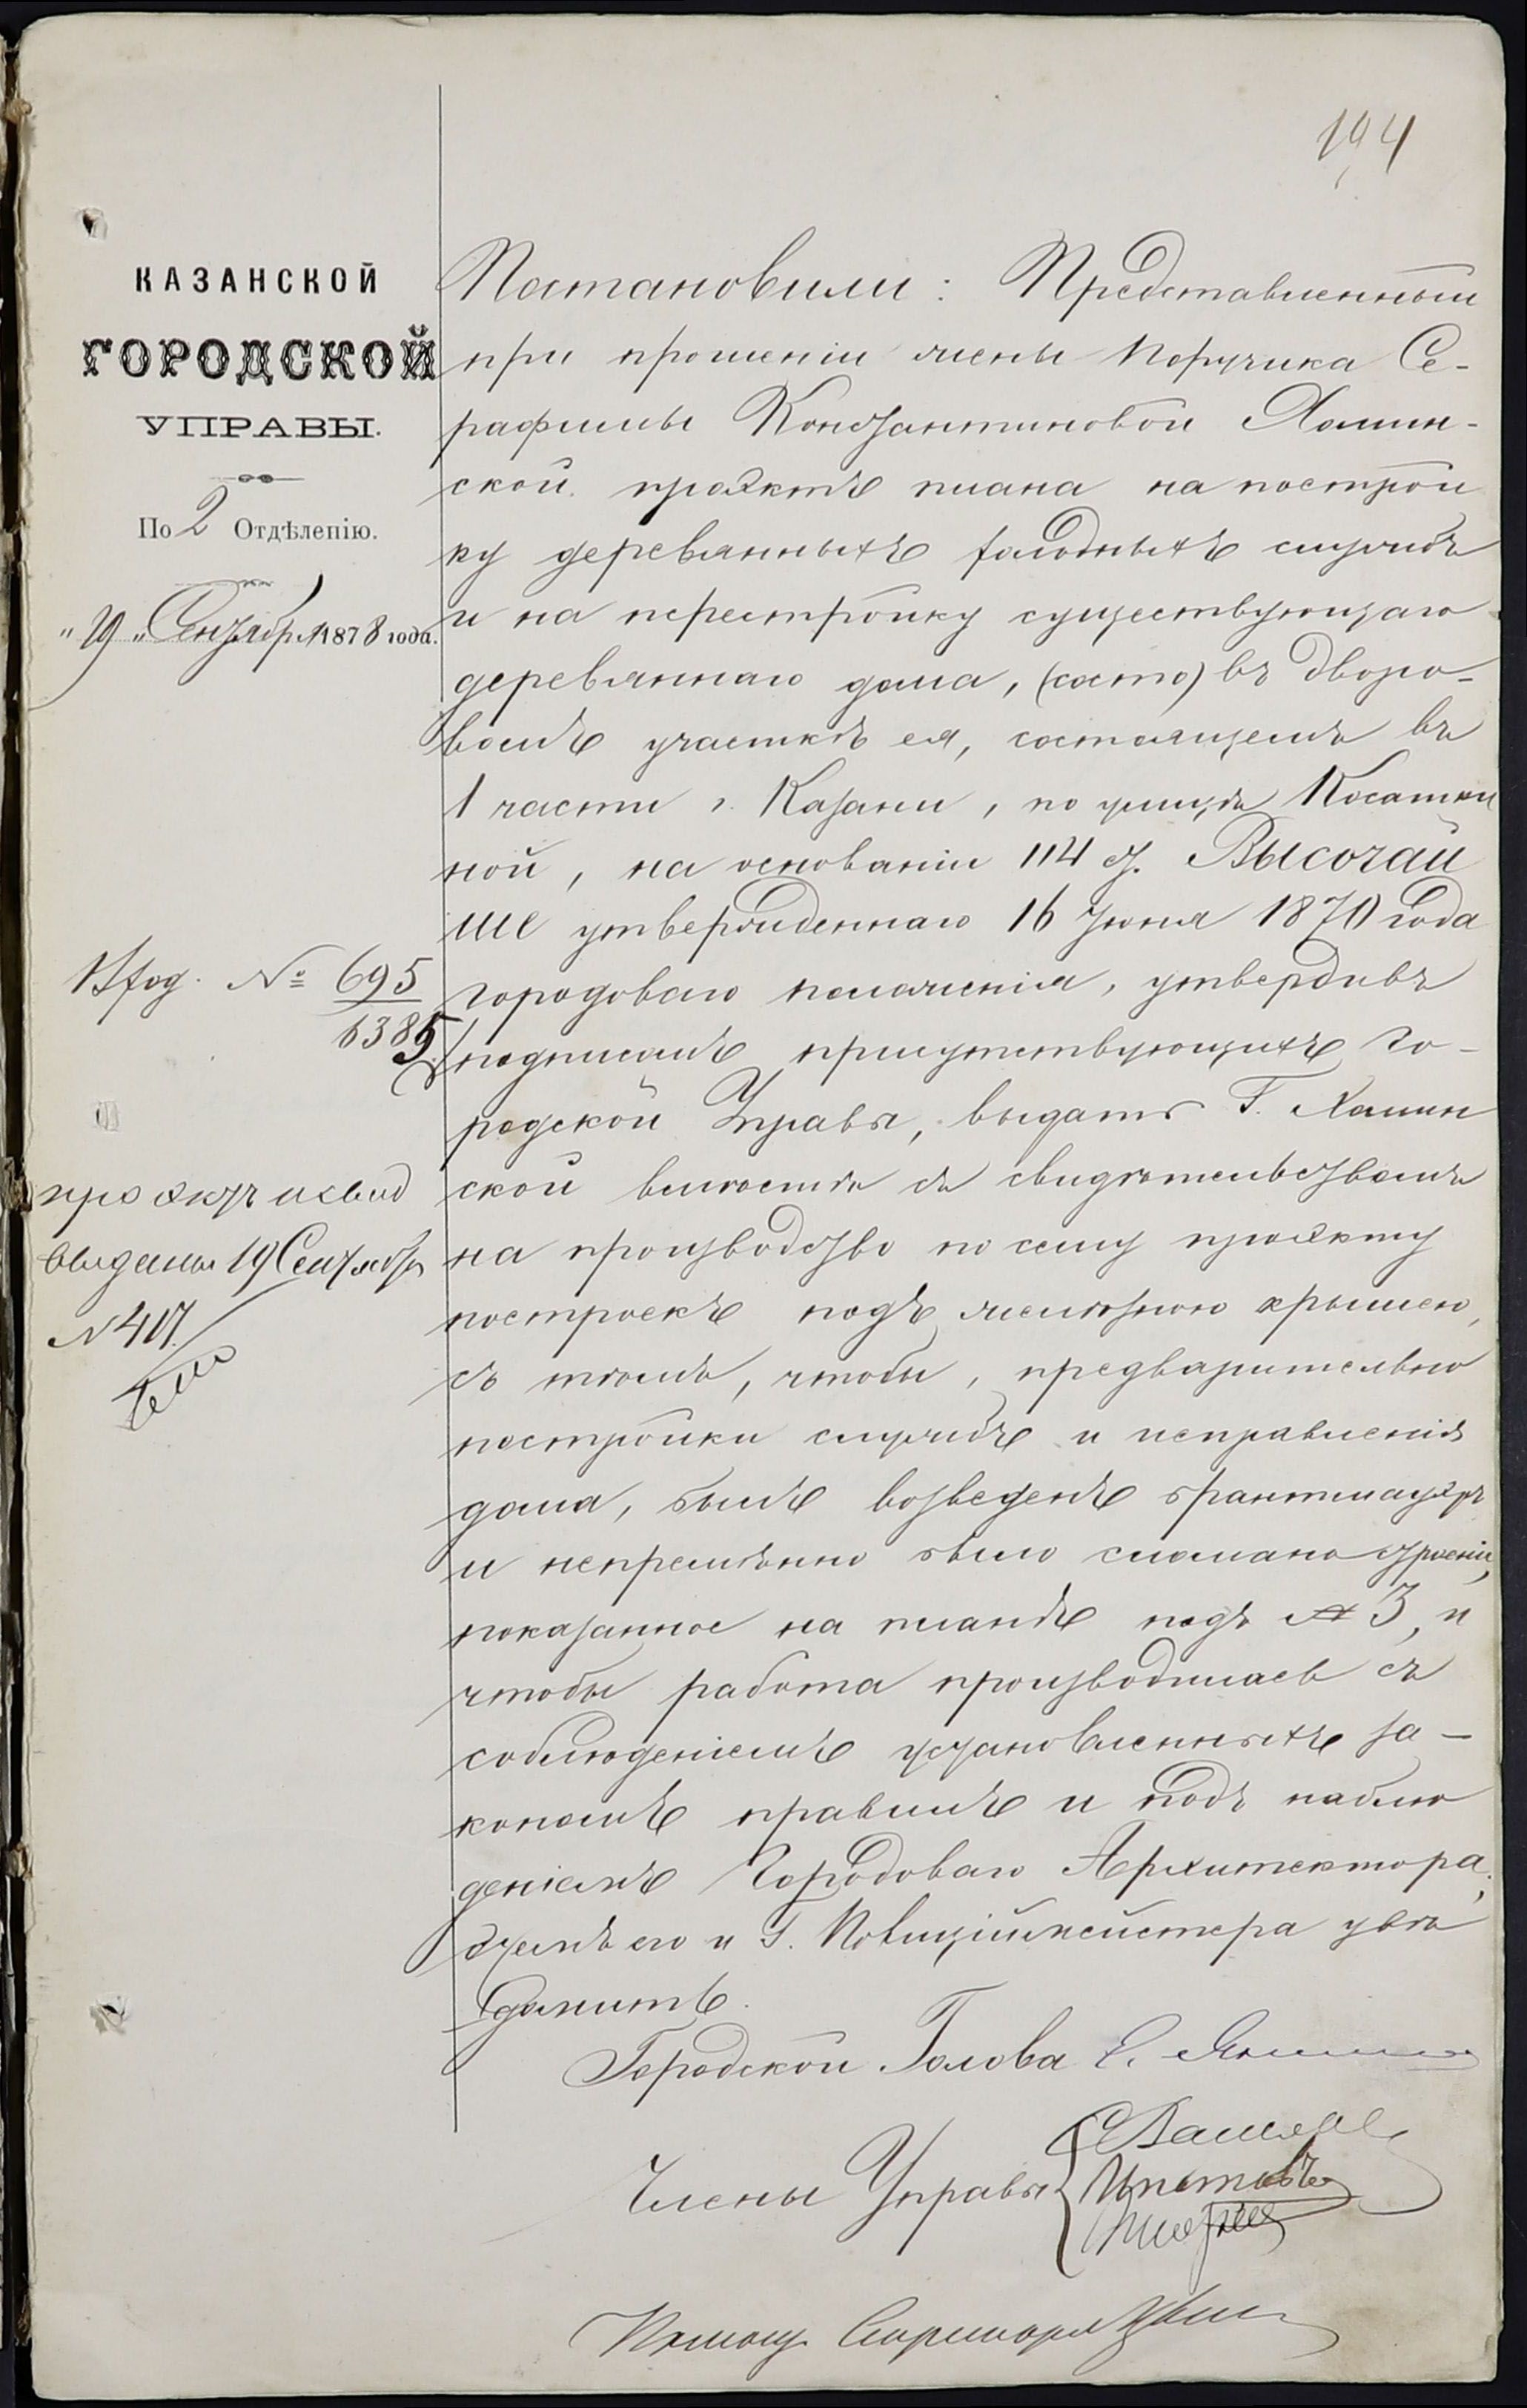 194
КАЗАНСКОЙ
ГОРОДСКОЙ
УПРАВЫ.
По 2 Отдѣленію.
"19" Сентября 1878 года.
Вход. № 695
6385
проэкт и свид
выданы 19 Сентября
№ 417
Постановили: Представленный
при прошеніи жены Поручика Се-
рафимы Константиновой Хомин-
ской проэктъ плана на построй
ку деревянныхъ холодныхъ службъ
и на перестройку существующаго
деревяннаго дома, (состо) въ дворо-
вомъ участкѣ ея, состоящемъ въ
1 части г. Казани, по улицѣ Косаткин
ной, на основаніи 114 ст. Высочай
ше утвержденнаго 16 Іюня 1870 года
городоваго положенія, утвердивъ
подписомъ присутствующихъ Го-
родской Управы, выдать Г. Хомин
ской вмѣстѣ съ свидѣтельствомъ
на производство по сему проэкту
построекъ подъ желѣзною крышею,
съ тѣмъ, чтобы, предварительно
постройки службъ и исправленія
дома, былъ возведенъ брантмауэръ
и непремѣнно было сломано строеніе,
показанное на планѣ подъ № 3, и
чтобы работа производилась съ
соблюденіемъ установленныхъ за-
кономъ правилъ и подъ наблю
деніемъ Городоваго Архитектора,
о чемъ его и Г. Полиціймейстера увѣ
домить.
Городской Голова Э. Янишевскій
Члены Управы
Ипатовъ
Помощ. Секретаря